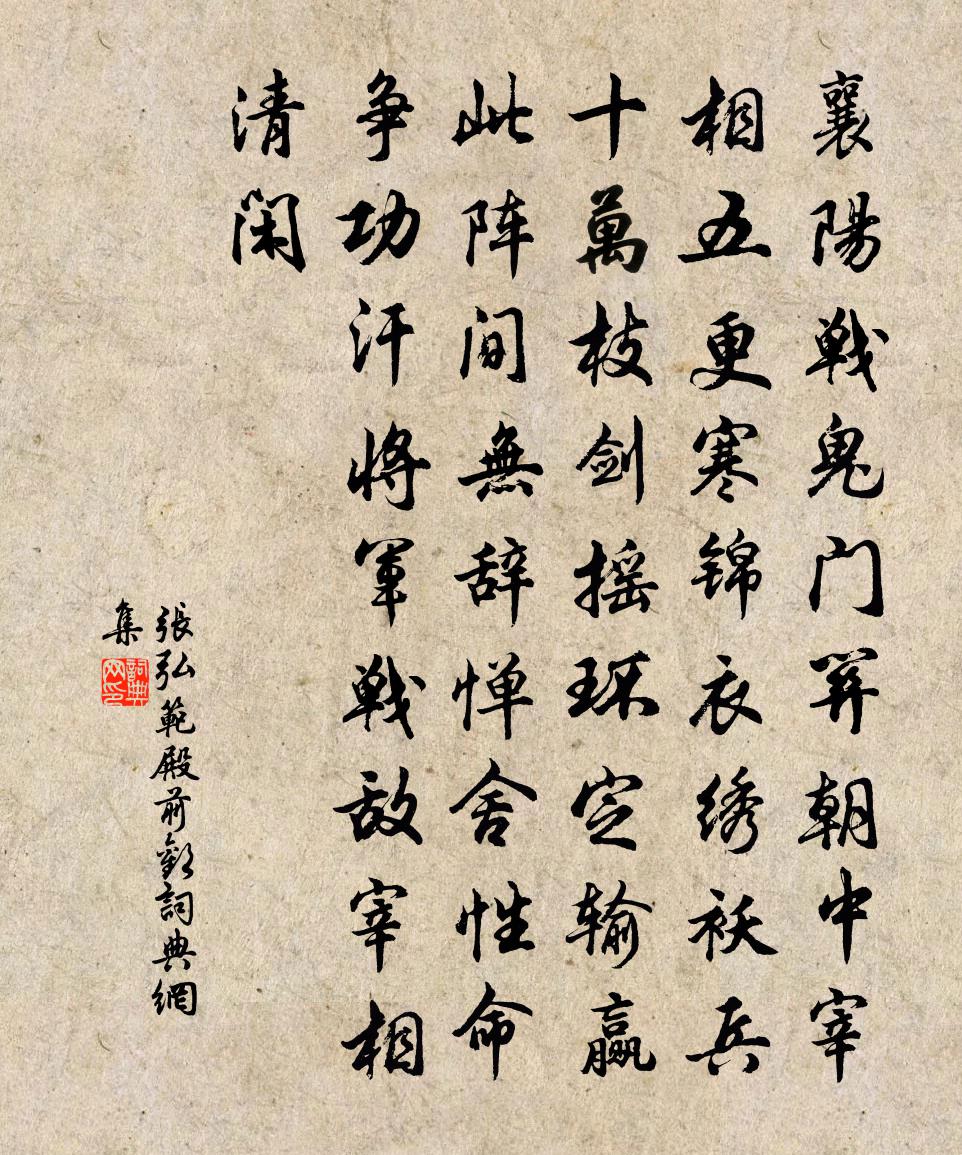 襄陽戰鬼门关朝中宰
相五更寒锦衣绣袄兵
十萬枝剑摇环定输赢
此阵间無辞惮舍性命
争功汗将軍戰敌宰相
清闲
張弘範殿前歡詞典網
集
詞典网印